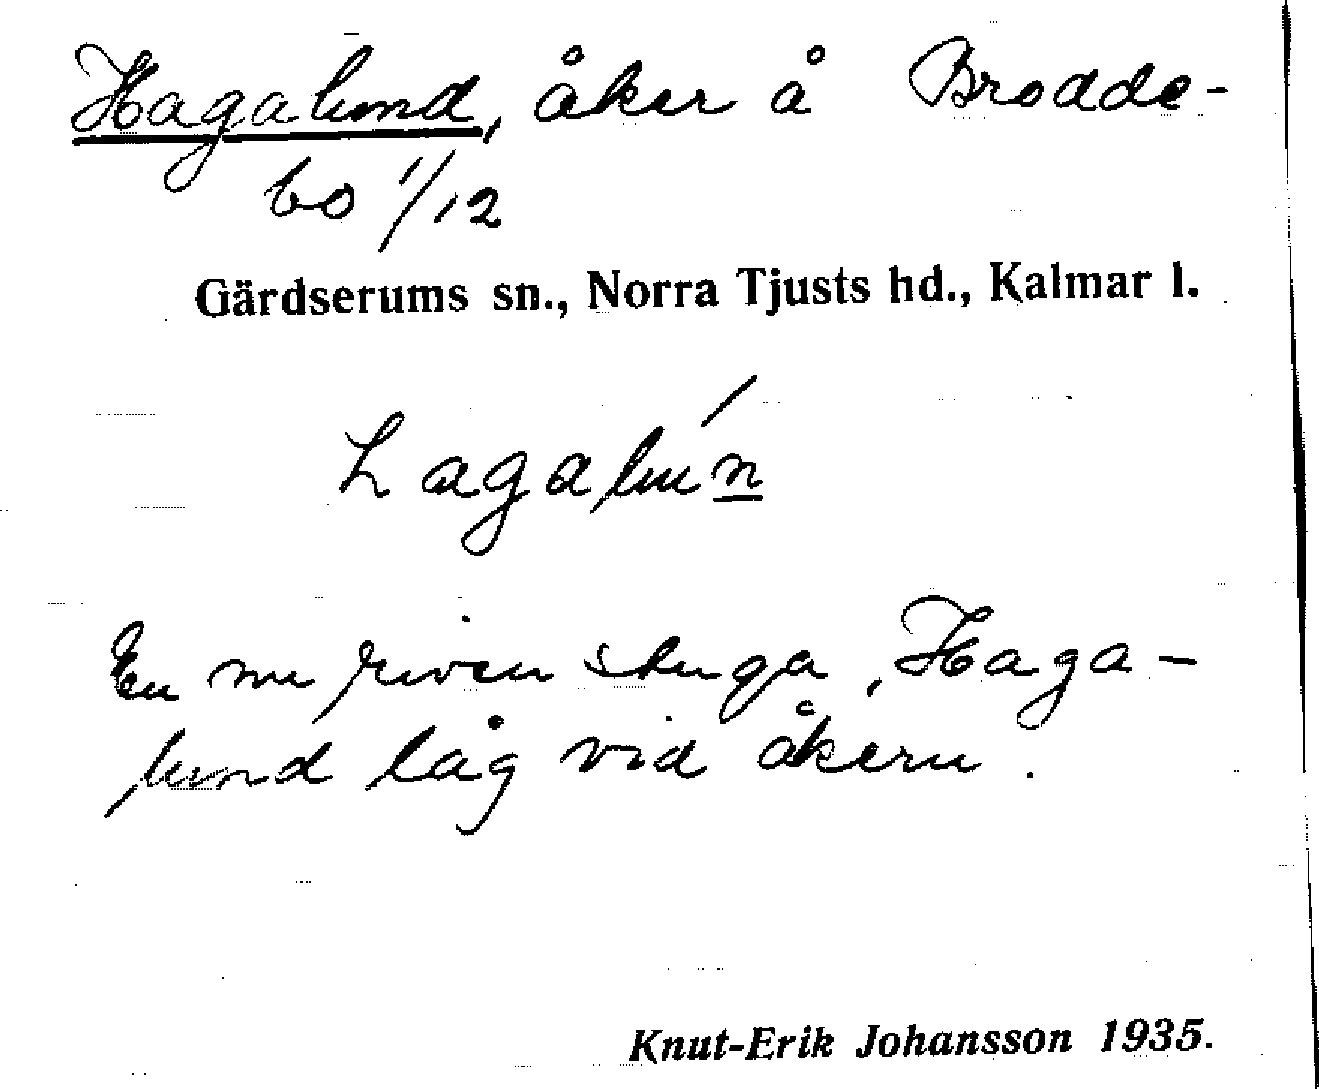 Hagalund, åker å Brodde-
bo 1/12
Gärdserums sn., Norra Tjusts hd., Kalmar l.
hagalun
En nu riven stuga, Haga-
lund låg vid åkern.
Knut-Erik Johansson 1935.